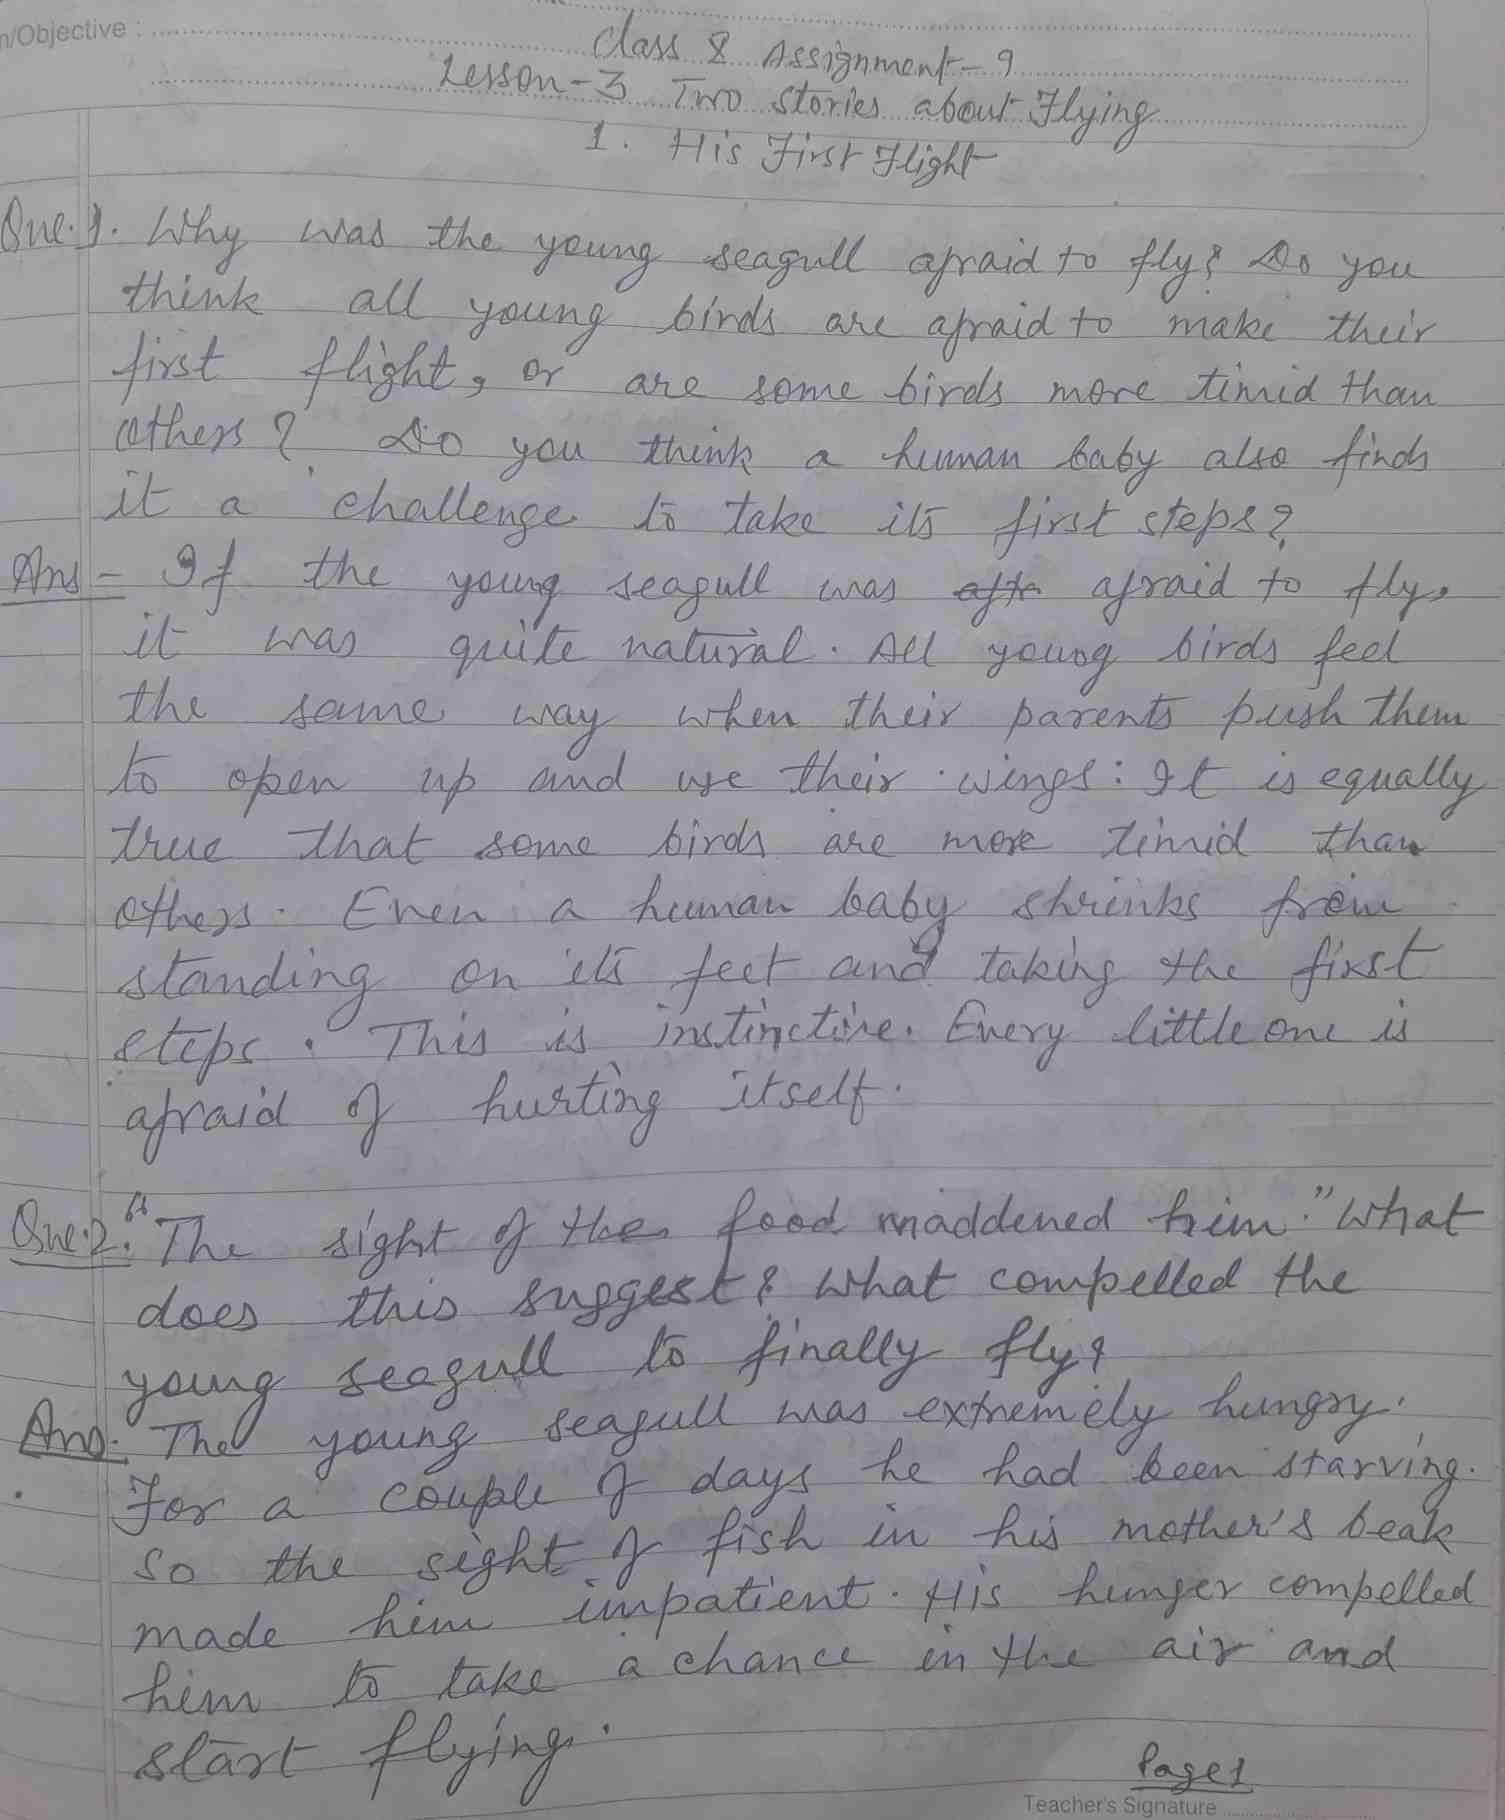 n/Objective :
Class 8 Assignment-9
Lesson-3 Two Stories about Flying
1. His First Flight
Que.1. Why was the young seagull afraid to fly? Do you
think all young birds are afraid to make their
first flight, or are some birds more timid than
others? Do you think a human baby also finds
it a challenge to take its first steps?
Ans - If the young seagull was afraid to fly,
it was quite natural. All young birds feel
the same way when their parents push them
to open up and use their wings: It is equally
true that some birds are more timid than
others. Even a human baby shrinks from
standing on its feet and taking the first
steps. This is instinctive. Every little one is
afraid of hurting itself.
Que.2. "The sight of the food maddened him." What
does this suggest? What compelled the
young seagull to finally fly?
Ans. The young seagull was extremely hungry.
For a couple of days he had been starving.
So the sight of fish in his mother's beak
made him impatient. His hunger compelled
him to take a chance in the air and
start flying.
Page 1
Teacher's Signature